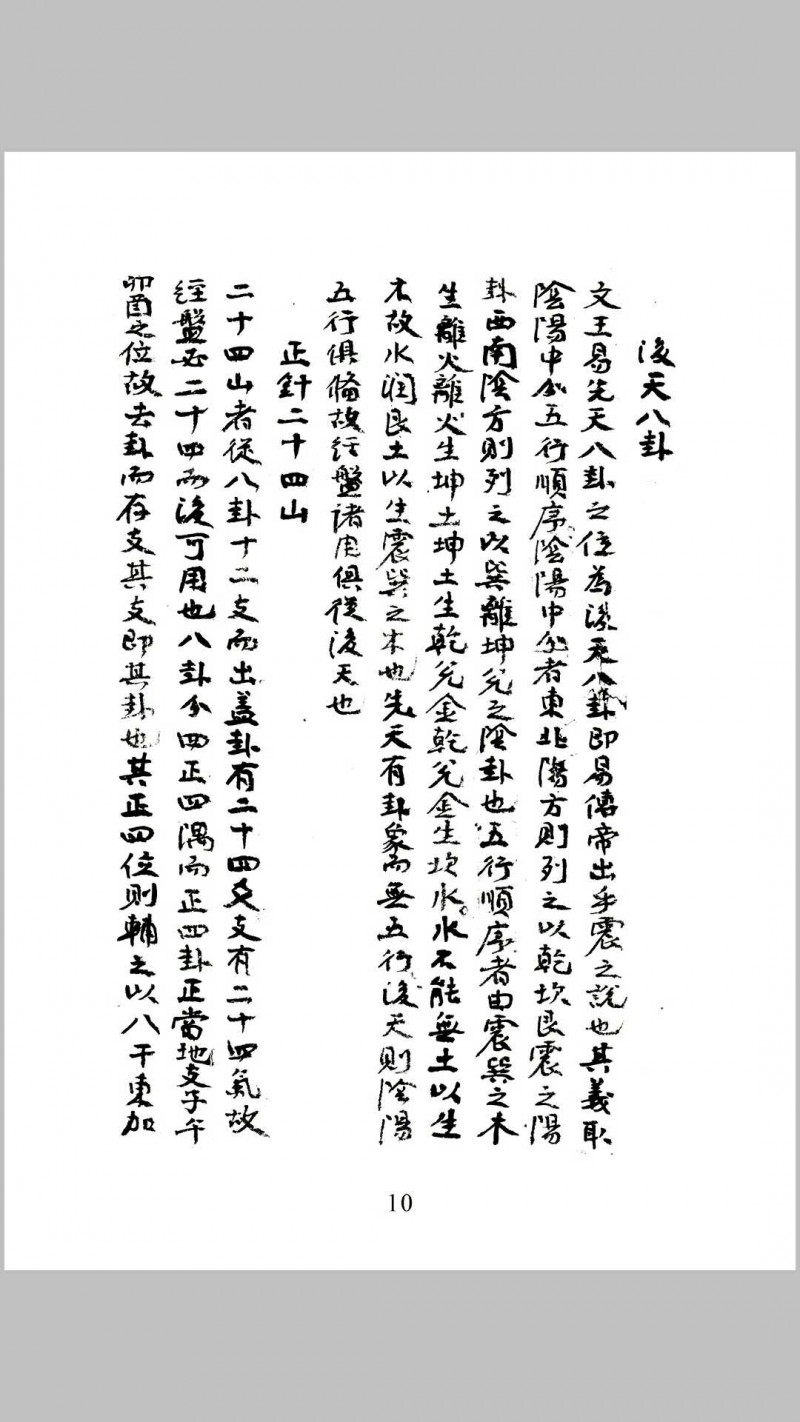 後天八卦
文王易先天八卦之位為後天八卦即易傳帝出乎震之説也其義取
陰陽中分五行順序陰陽中分者東北陽方則列之以乾坎艮震之陽
卦西南陰方則列之以巽離坤兌之陰卦也五行順序者由震巽之木
生離火離火生坤土坤土生乾兌金乾兌金生坎水水不能無土以生
木故水润艮土以生震巽之木也先天有卦象而無五行後天則陰陽
五行俱備故経盤諸用俱從後天也
正針二十四山
二十四山者從八卦十二支而出盖卦有二十四爻支有二十四氣故
経盤必二十四而後可用也八卦分四正四隅而正四卦正當地支子午
卯酉之位故去卦而存支其支即其卦也其正四位則輔之以八干東加
10